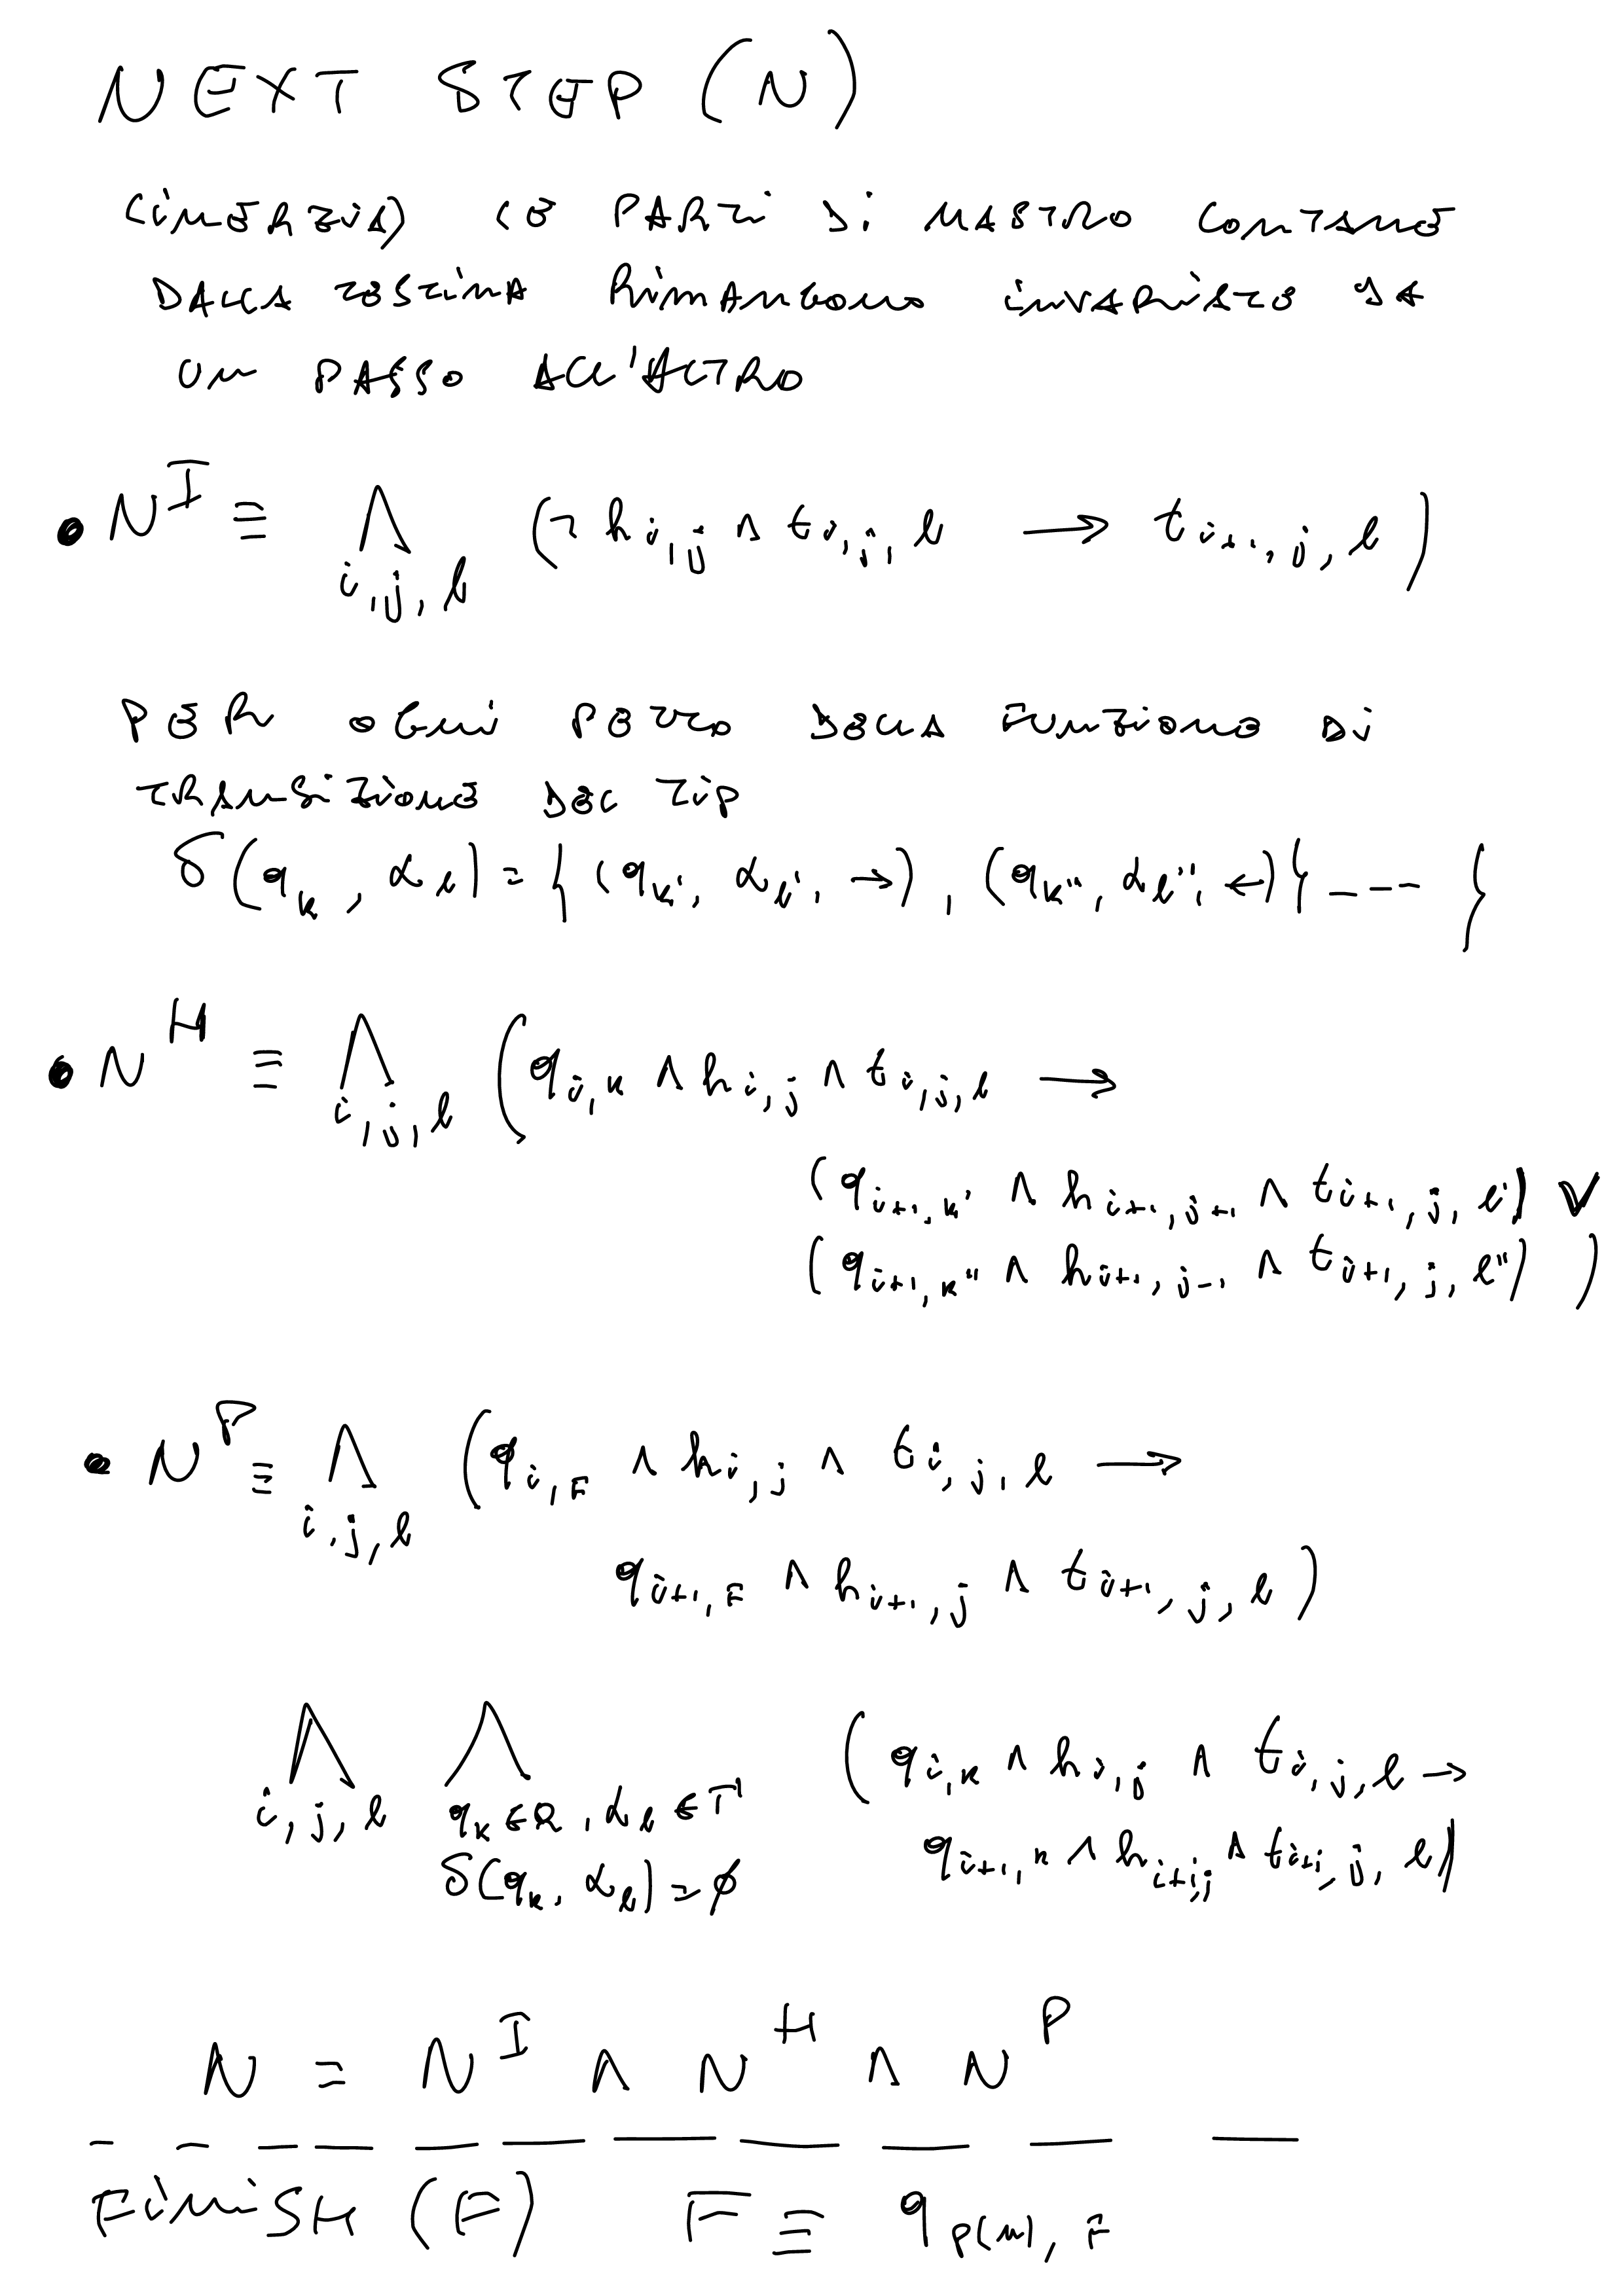 NEXT STEP (N)
(INERZIA) LE PARTI DI NASTRO LONTANE
DALLA TESTINA RIMANGONO INVARIATE DA
UN PASSO ALL'ALTRO
• N^I ≡ ⋀_{i,j,l} (¬ h_{i,j} ∧ t_{i,j,l} → t_{i+1,j,l})
PER OGNI PEZZO DELLA FUNZIONE DI
TRANSIZIONE DEL TIP
δ(q_k, α_l) = { (q_k', α_l', →), (q_k'', α_l'', ←) { ---- }
• N^H ≡ ⋀_{i,j,l} (q_{i,k} ∧ h_{i,j} ∧ t_{i,j,l} →
(q_{i+1,k'} ∧ h_{i+1,j+1} ∧ t_{i+1,j,l'}) ∨
(q_{i+1,k''} ∧ h_{i+1,j-1} ∧ t_{i+1,j,l''}) )
• N^P ≡ ⋀_{i,j,l} (q_{i,F} ∧ h_{i,j} ∧ t_{i,j,l} →
q_{i+1,F} ∧ h_{i+1,j} ∧ t_{i+1,j,l})
⋀_{i,j,l} ⋀_{q_k ∈ Q, α_l ∈ Γ} (q_{i,k} ∧ h_{i,j} ∧ t_{i,j,l} →
δ(q_k, α_l) = ∅ q_{i+1,k} ∧ h_{i+1,j} ∧ t_{i+1,j,l})
N = N^I ∧ N^H ∧ N^P
FINISH (F) F ≡ q_{P(n), F}